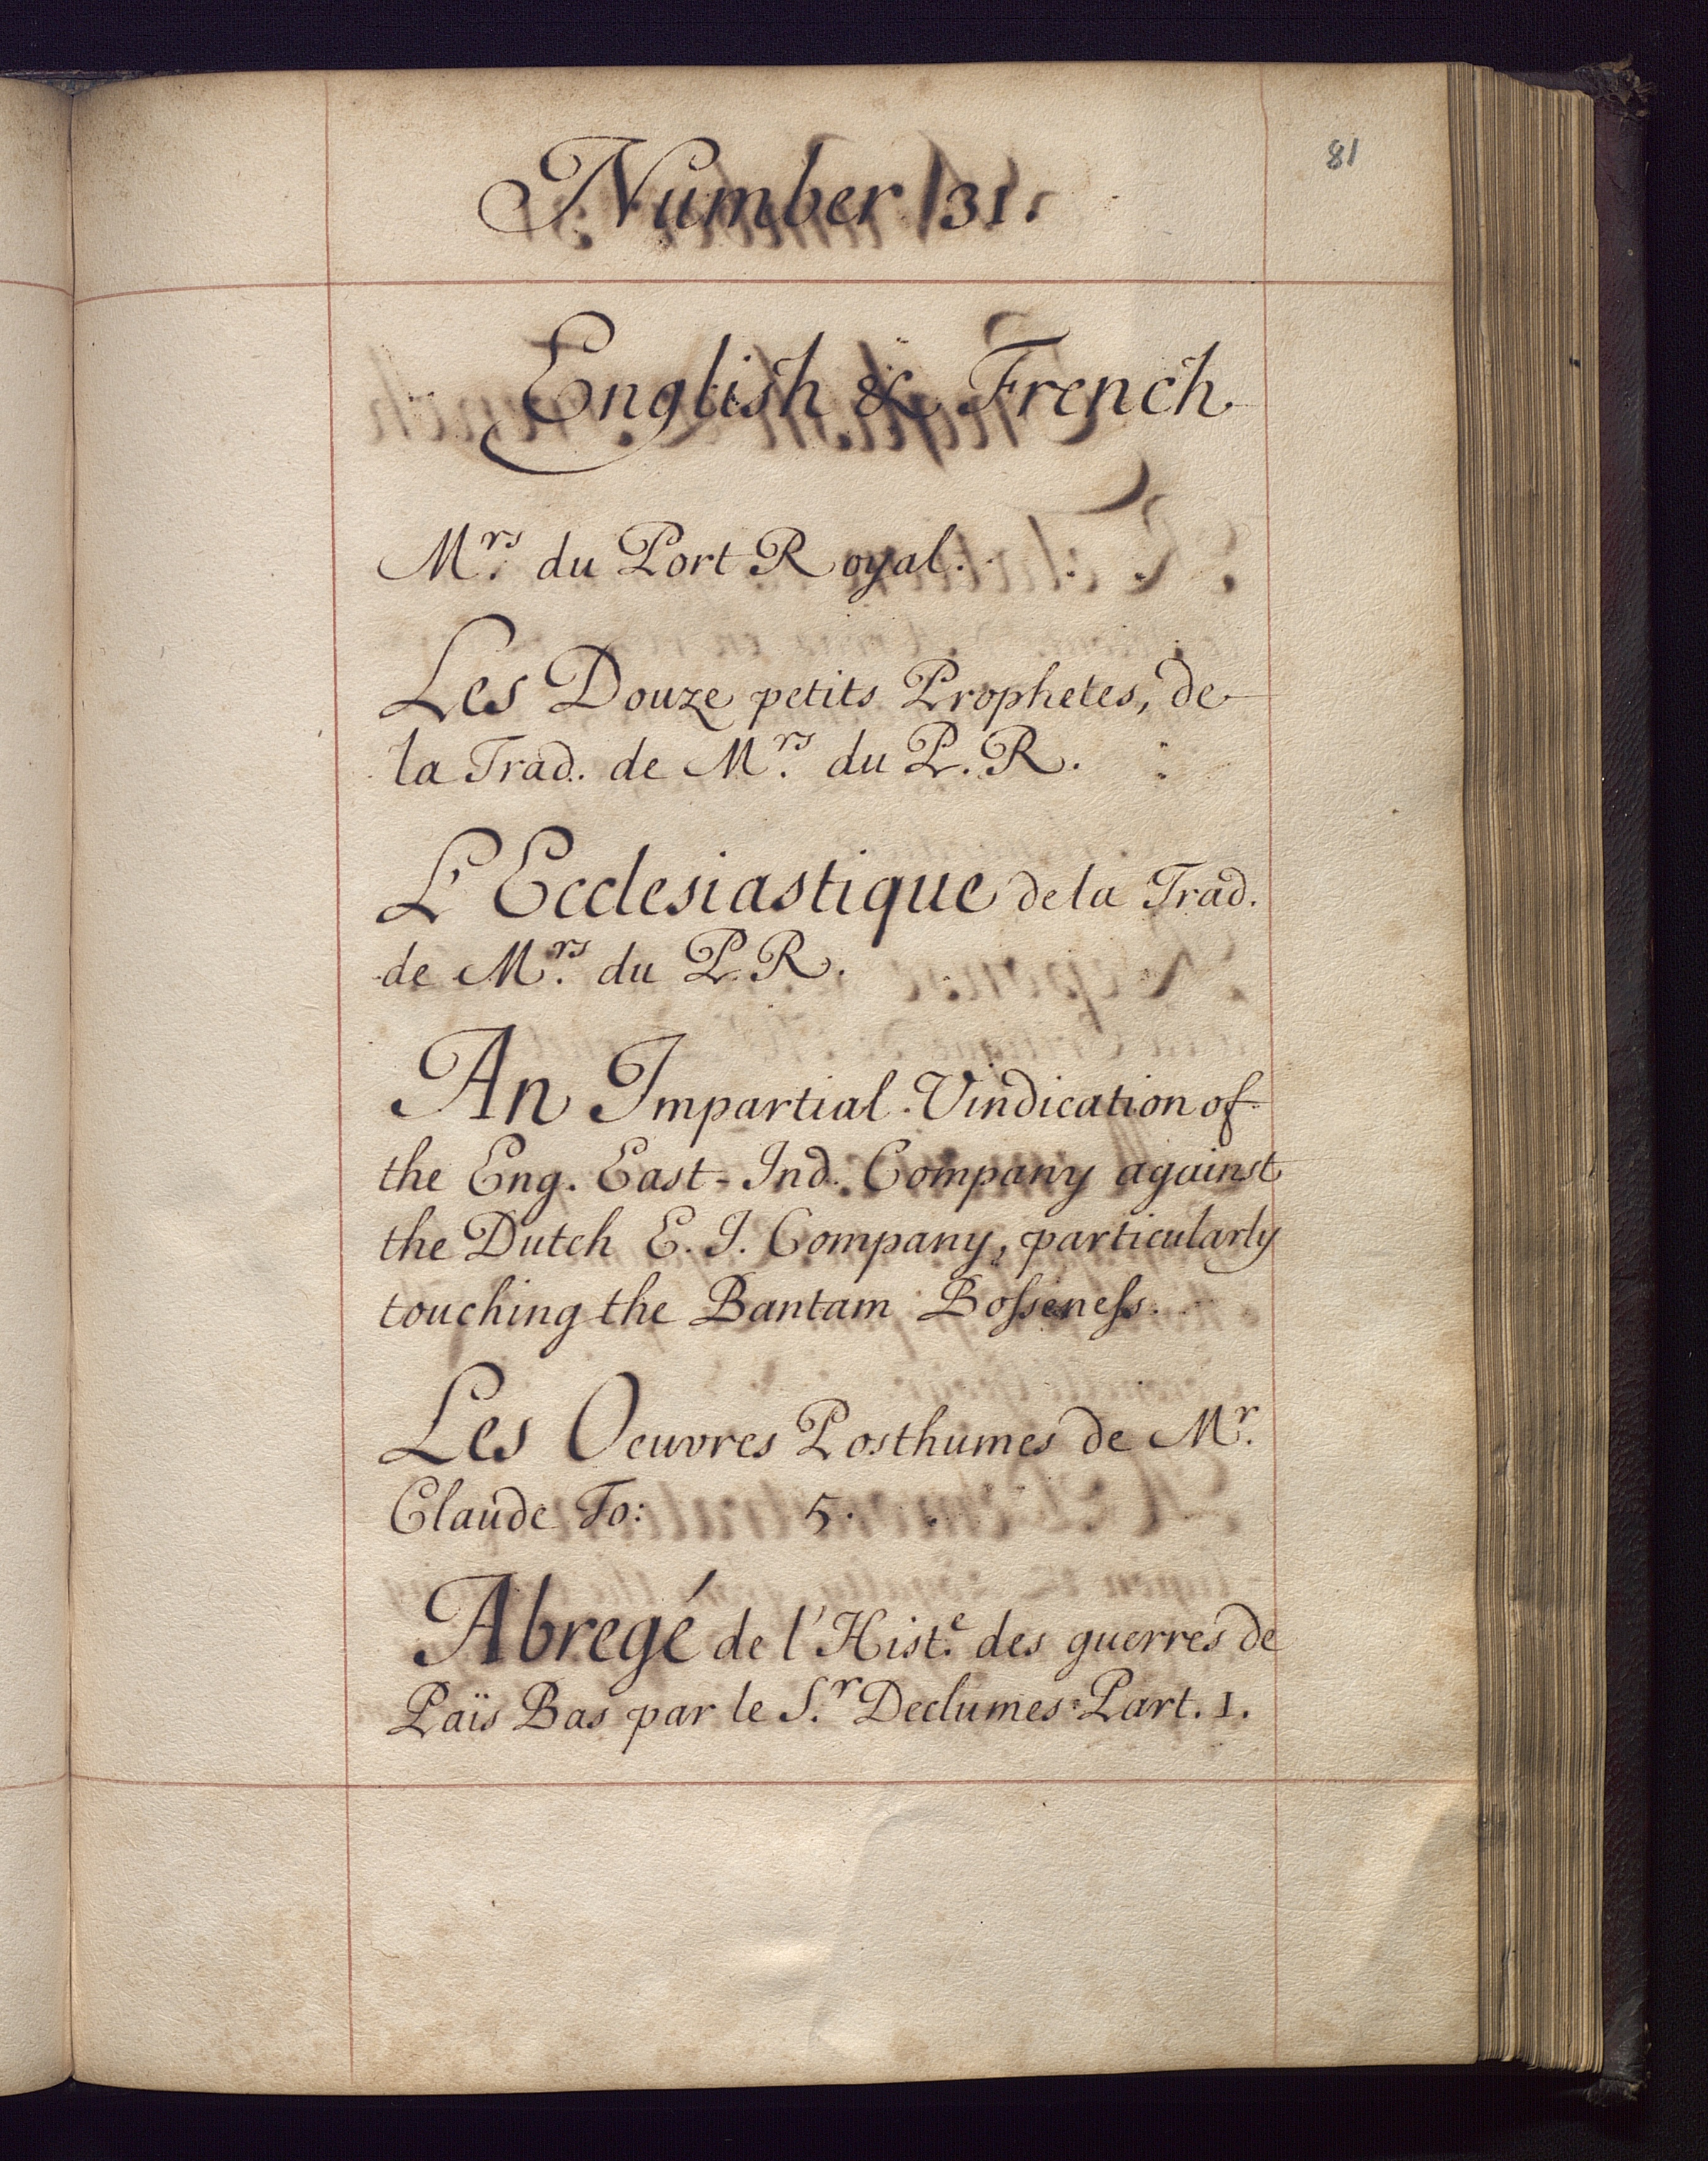 81
Number 31.
English & French
Mrs. du Port Royal.
Les Douze petits Prophetes, de
la Trad. de Mrs. du P. R.
L'Ecclesiastique de la Trad.
de Mrs. du P. R.
An Impartial Vindication of
the Eng. East-Ind. Company against
the Dutch E. I. Company, particularly
touching the Bantam Bosseness.
Les Oeuvres Posthumes de Mr.
Claude To: 5.
Abregé de l'Histe. des guerres de
Païs Bas par le Sr. Declumes Part. 1.